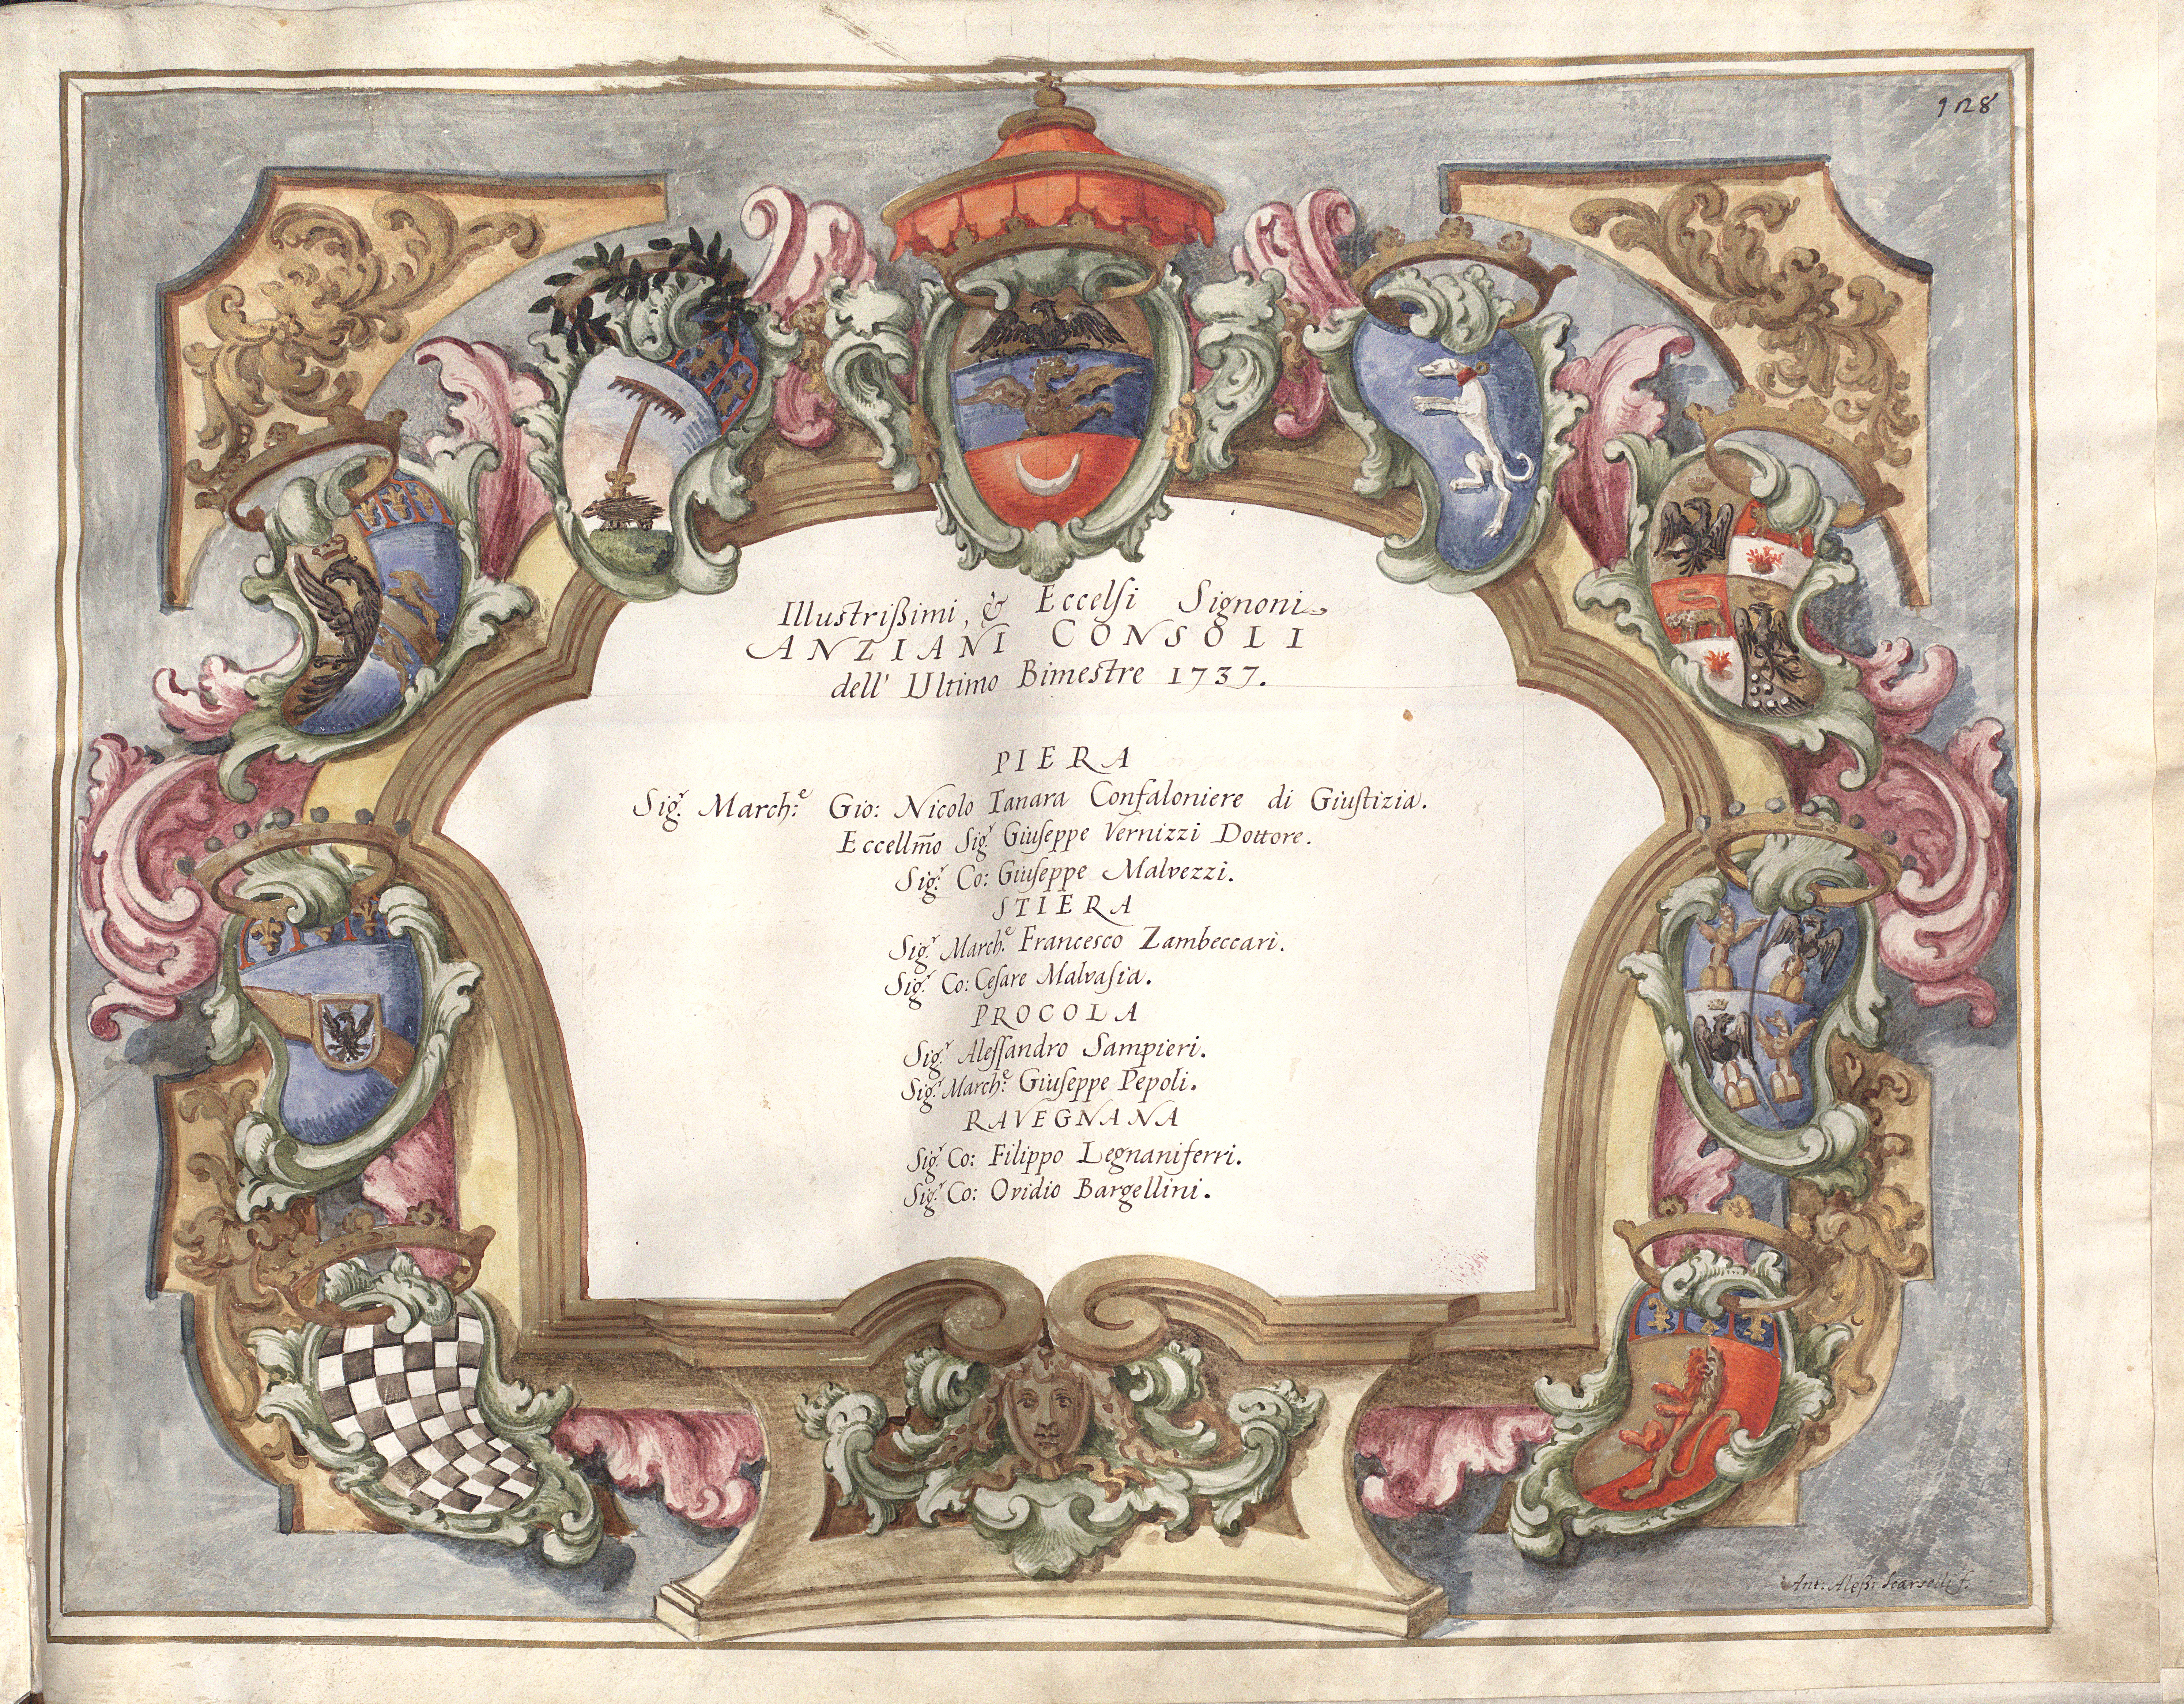 128
Illustrißimi, & Eccelſi Signori
ANZIANI CONSOLI
dell' Ultimo Bimestre 1737.
PIERA
Sig.r March:e Gio: Nicolò Tanara Confaloniere di Giuſtizia.
Eccellm̃o Sig.r Giuſeppe Vernizzi Dottore.
Sig.r Co: Giuſeppe Malvezzi.
STIERA
Sig.r March.e Francesco Zambeccari.
Sig.r Co: Ceſare Malvaſia.
PROCOLA
Sig.r Aleſſandro Sampieri.
Sig.r March:e Giuſeppe Pepoli.
RAVEGNANA
Sig.r Co: Filippo Legnaniferri.
Sig.r Co: Ovidio Bargellini.
Ant. Aleß: Scarselli f.